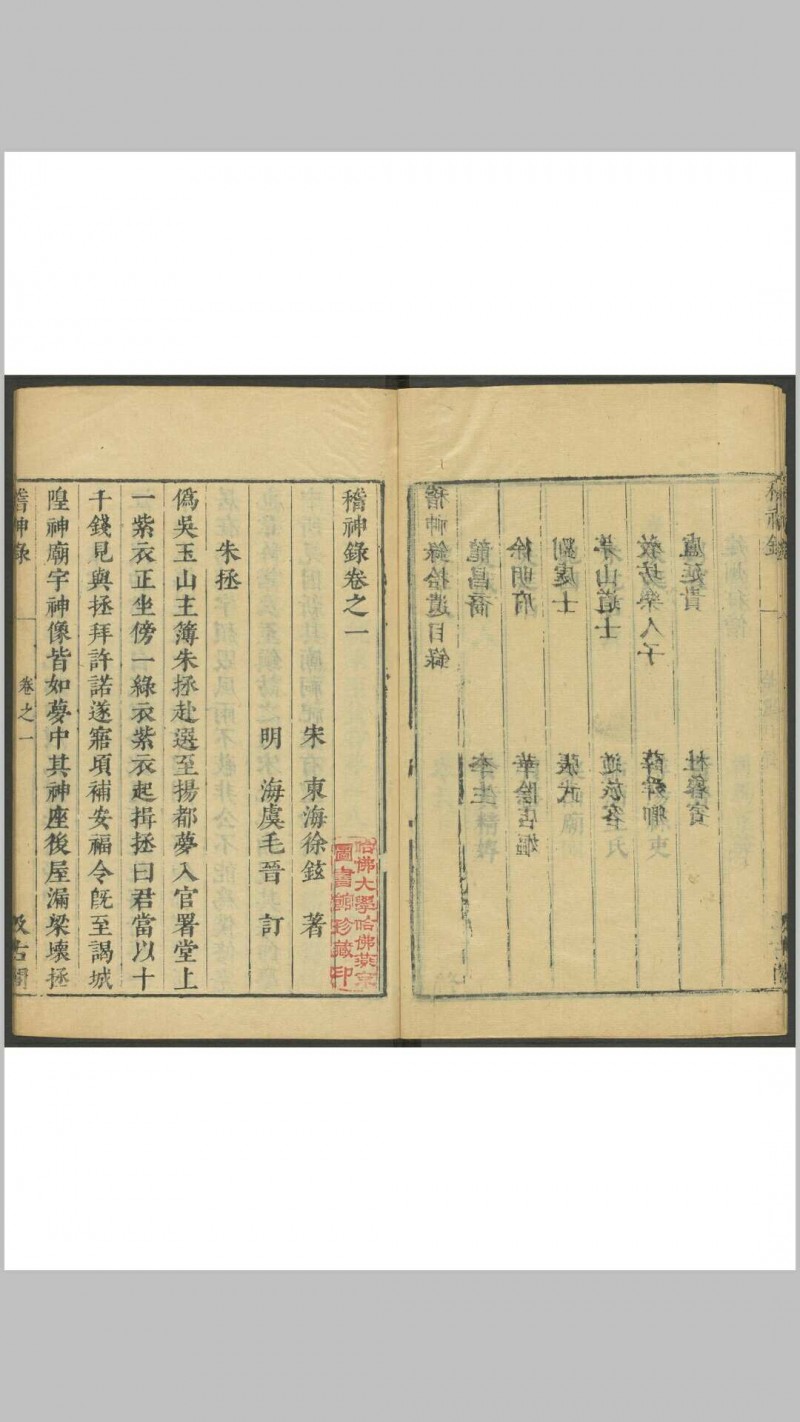 稽神錄拾遺目錄
龍昌裔 李生
徐明府 華陰店嫗
劉處士 張武
茅山道士 逆旅客
教坊樂人子 舜卿
盧延貴 杜魯賓
稽神錄
稽神錄卷之一
宋 東海徐鉉 著
明 海虞毛晉 訂
朱拯
僞吳玉山主簿朱拯赴選至揚都夢入官署堂上
一紫衣正坐傍一綠衣紫衣起揖拯曰君當以十
千錢見與拯拜許諾遂寤頃補安福令旣至謁城
隍神廟宇神像皆如夢中其神座後屋漏梁壞拯
稽神錄
卷之一
汲古閣
哈佛大學哈佛燕京
圖書館珍藏印